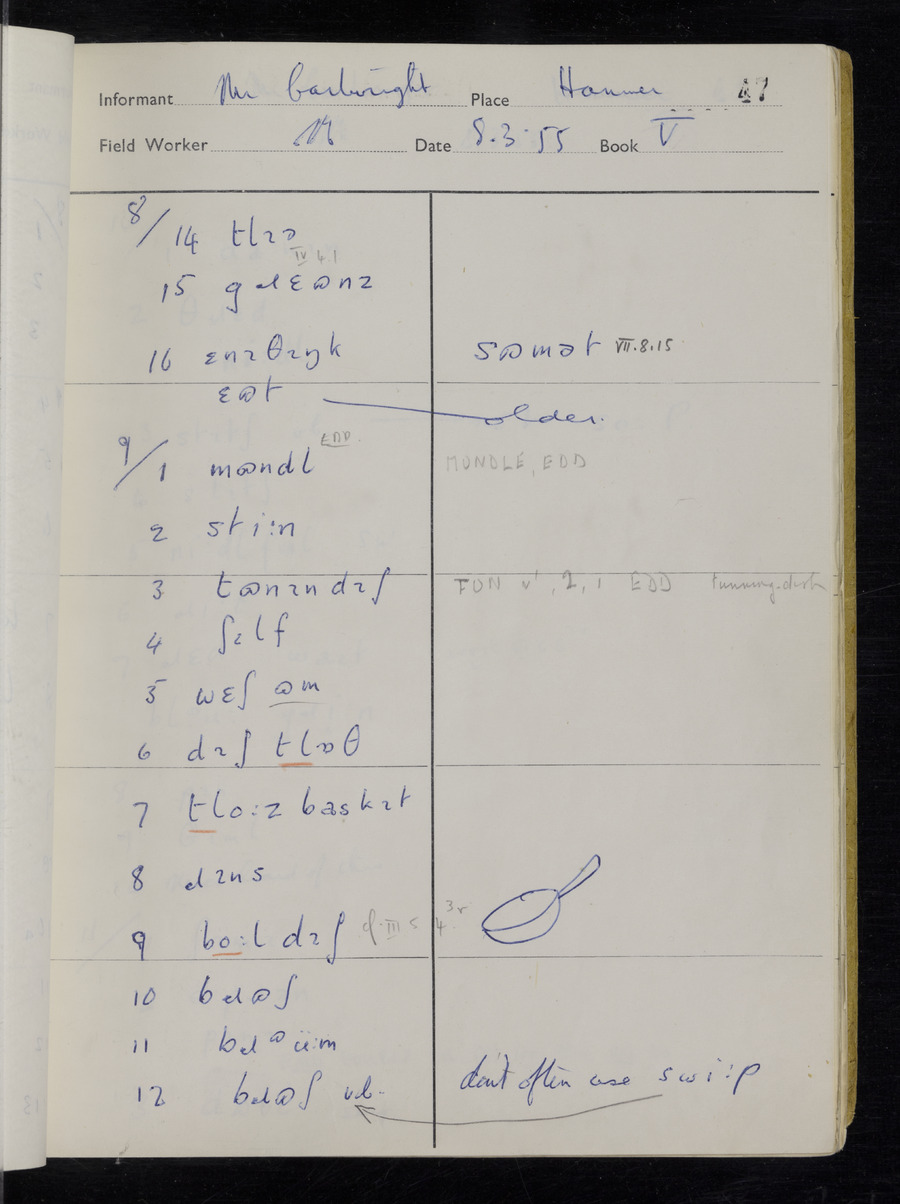 Informant Mr Cartwright Place Hanmer 47
Field Worker Date 8.3.55 Book V
8/14 tlɪə
IV 4.1
15 gɹɛɷnz
16 ɛnɪθɪŋk sɷmət VII.8.15
ɛɷt older.
9/1 mɷndl EDD MUNDLE, EDD
2 sti:n
3 tɷnɪn dɪʃ TUN v¹, 2, 1 EDD tunning-dish
4 ʃɪlf
5 wɛʃ ɷm
6 dɪʃ tlɒθ
7 tlo:z baskɪt
8 ɹɪns
9 bo:l dɪʃ cf. III 5 4
10 bɹɷʃ
11 bɹɷü:m
12 bɹɷʃ vb. don't often use swi:p